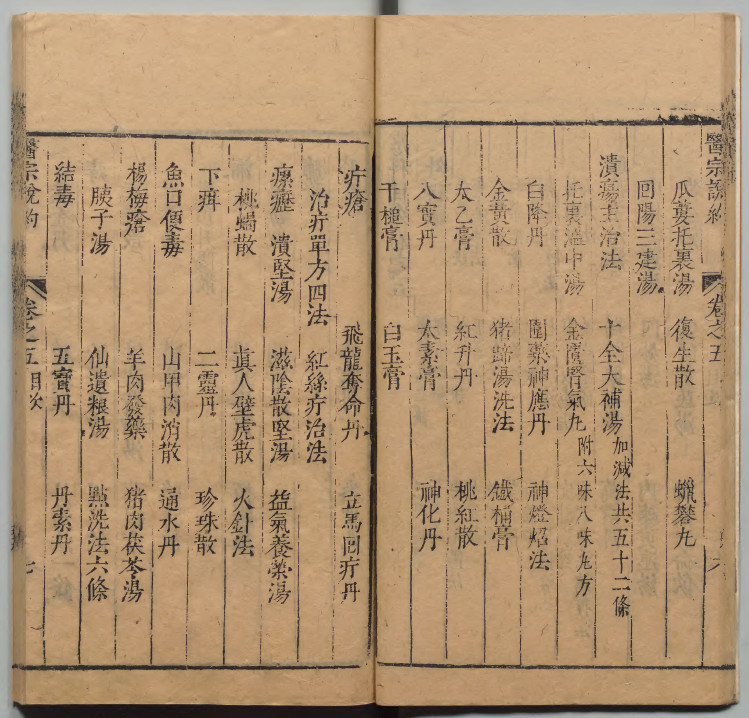 醫宗說約 卷之五 六
瓜蔞托裏湯 復生散 蠟礬丸
回陽三建湯
潰瘍主治法 十全大補湯 加減法共五十二條
托裏溫中湯 金匱腎氣丸 附六味八味丸方
白降丹 圍藥神應丹 神燈炤法
金黃散 猪蹄湯洗法 鐵桶膏
太乙膏 紅升丹 桃紅散
八寶丹 太素膏 神化丹
千槌膏 白玉膏
疔瘡 飛龍奪命丹 立馬回疔丹
治疔單方四法 紅絲疔治法
瘰癧 潰堅湯 滋陰散堅湯 益氣養榮湯
桃蝎散 眞人壁虎散 火針法
下疳 二靈丹 珍珠散
魚口便毒 山甲肉消散 通水丹
楊梅瘡 羊肉發藥 猪肉茯苓湯
胰子湯 仙遺粮湯 點洗法六條
結毒 五寶丹 丹素丹
醫宗說約 卷之五 目次 七